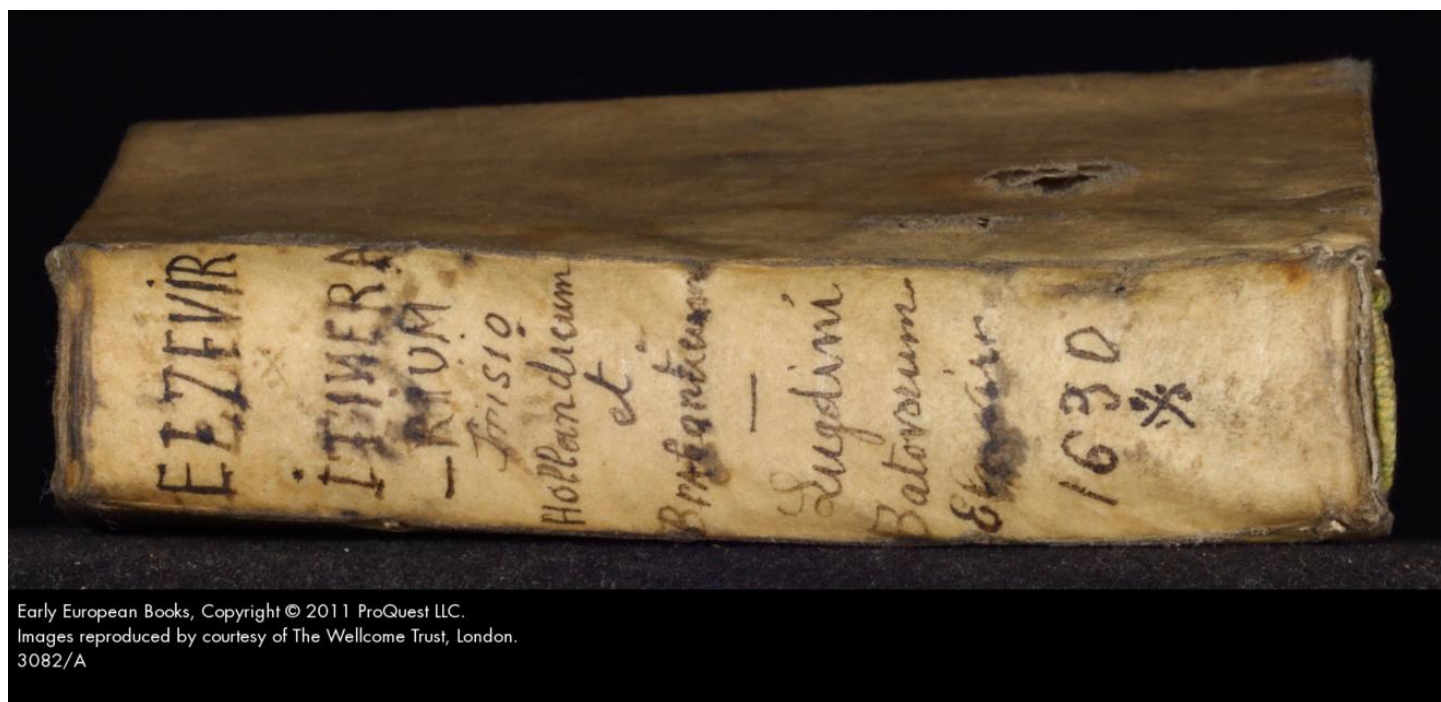 ELZEVIR
ITINERA
RIUM
Frisio
Hollandicum
et
Brabanticum
—
Lugdini
Batovorum
1630
Early European Books, Copyright © 2011 ProQuest LLC.
Images reproduced by courtesy of The Wellcome Trust, London.
3082/A